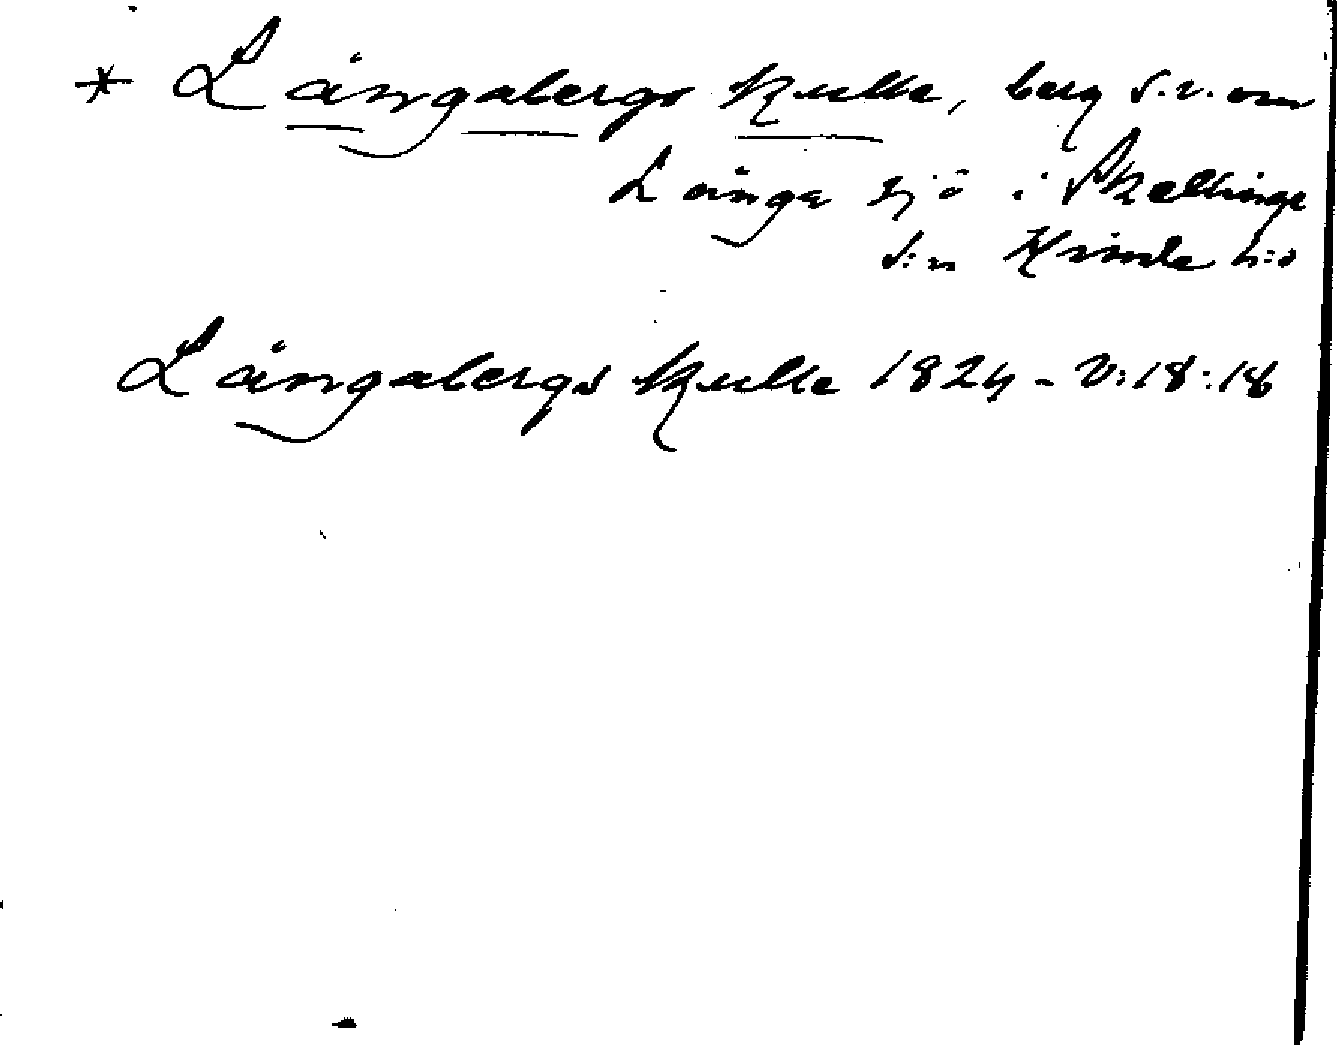 * Långabergs kulle, berg s.v. om
Långa sjö i Skällinge
s:n Himle h:d
Långabergs kulle 1824 - V:18:18